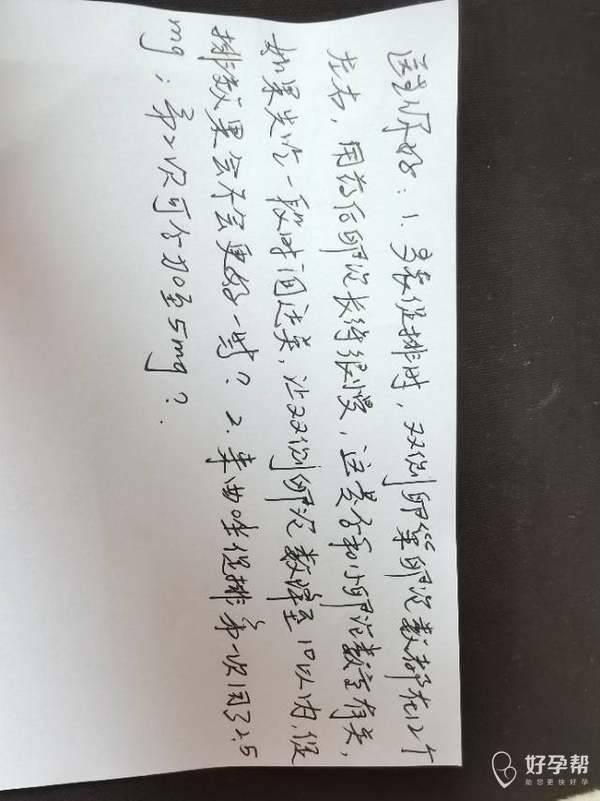 医生你好：1. 号表促排时，双侧卵巢卵泡数都在12个
左右，用药后卵泡长得很慢，这是否和小卵泡数量有关，
如果先吃一段时间达英，让双侧卵泡数降至10以内，促
排效果会不会更好一些？2. 来曲唑促排第一次用了2.5
mg，第2次可否加至5mg？
好孕帮
助您更快好孕